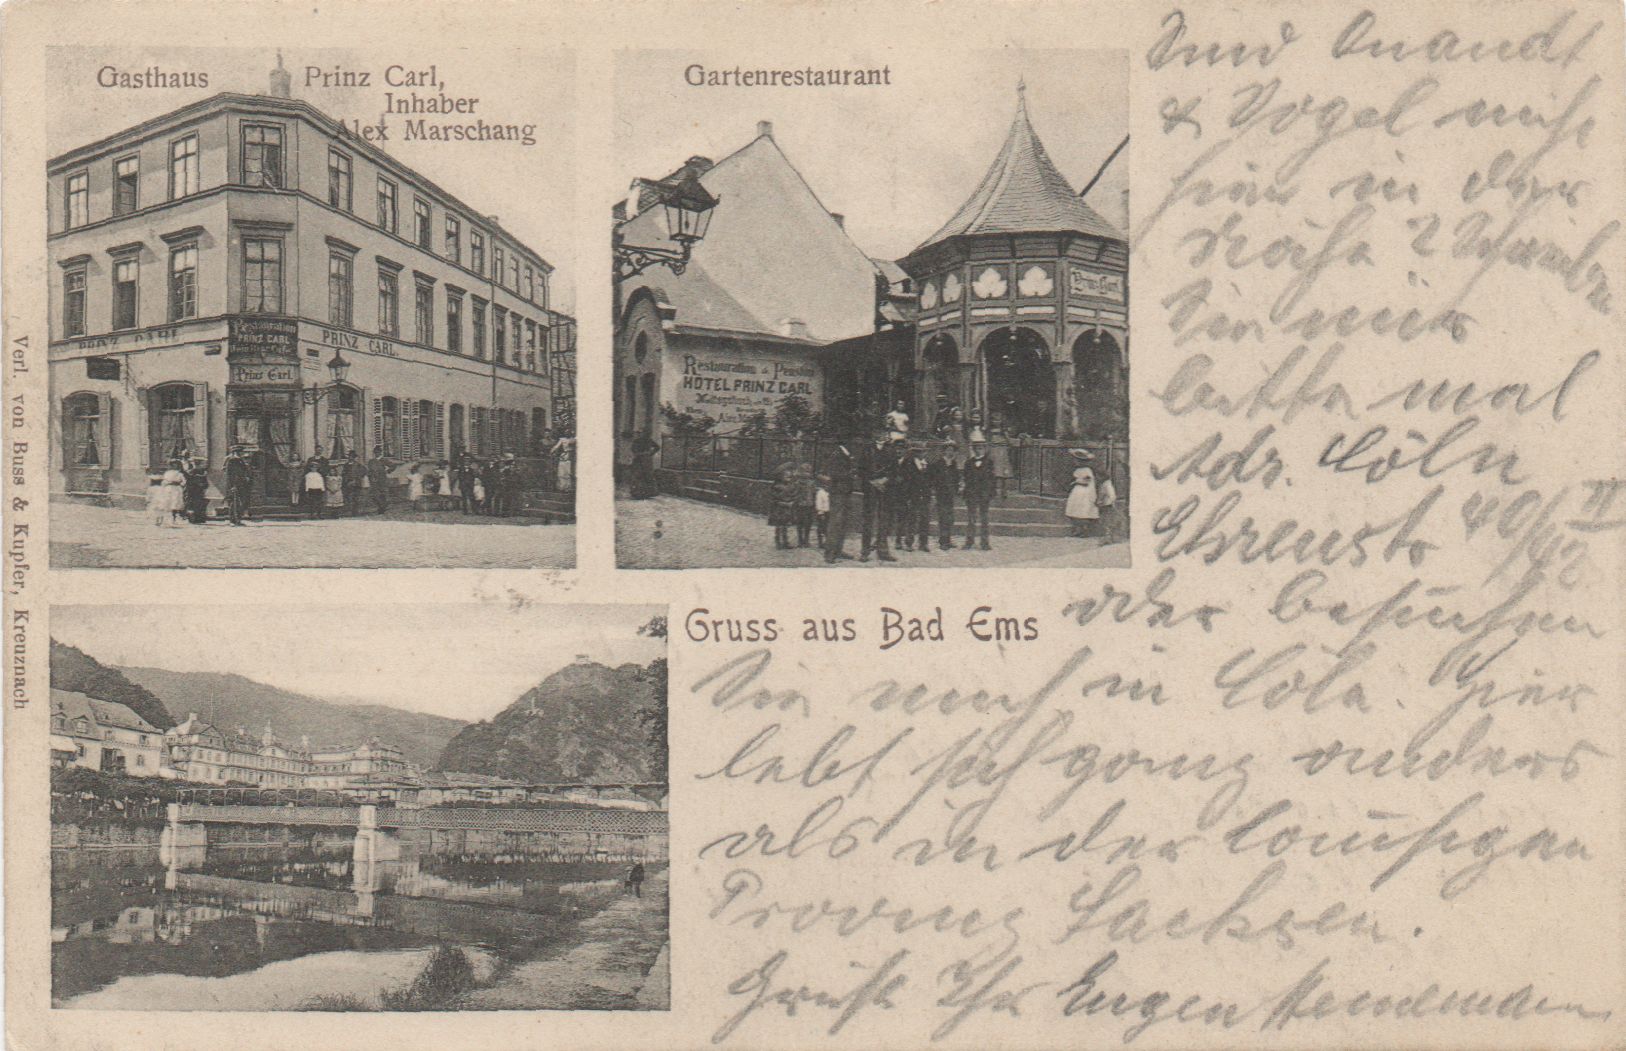 Gasthaus Prinz Carl,
Inhaber
Alex Marschang
Gartenrestaurant
PRINZ CARL
Restauration
PRINZ CARL
Prinz Carl
PRINZ CARL.
Prinz Carl
Restauration & Pension
HOTEL PRINZ CARL
Verl. von Buss & Kupfer, Kreuznach
Gruss aus Bad Ems
Sind
& Vogel nicht
hier in der
Nähe? Schreiben
Sie mir
bitte mal
Adr. Cöln
Ehrenstr 40/42 II
oder besuchen
Sie mich in Cöln. Hier
lebt sich ganz anders
als in der lausigen
Provinz Sachsen.
Grüßt Ihr Eugen